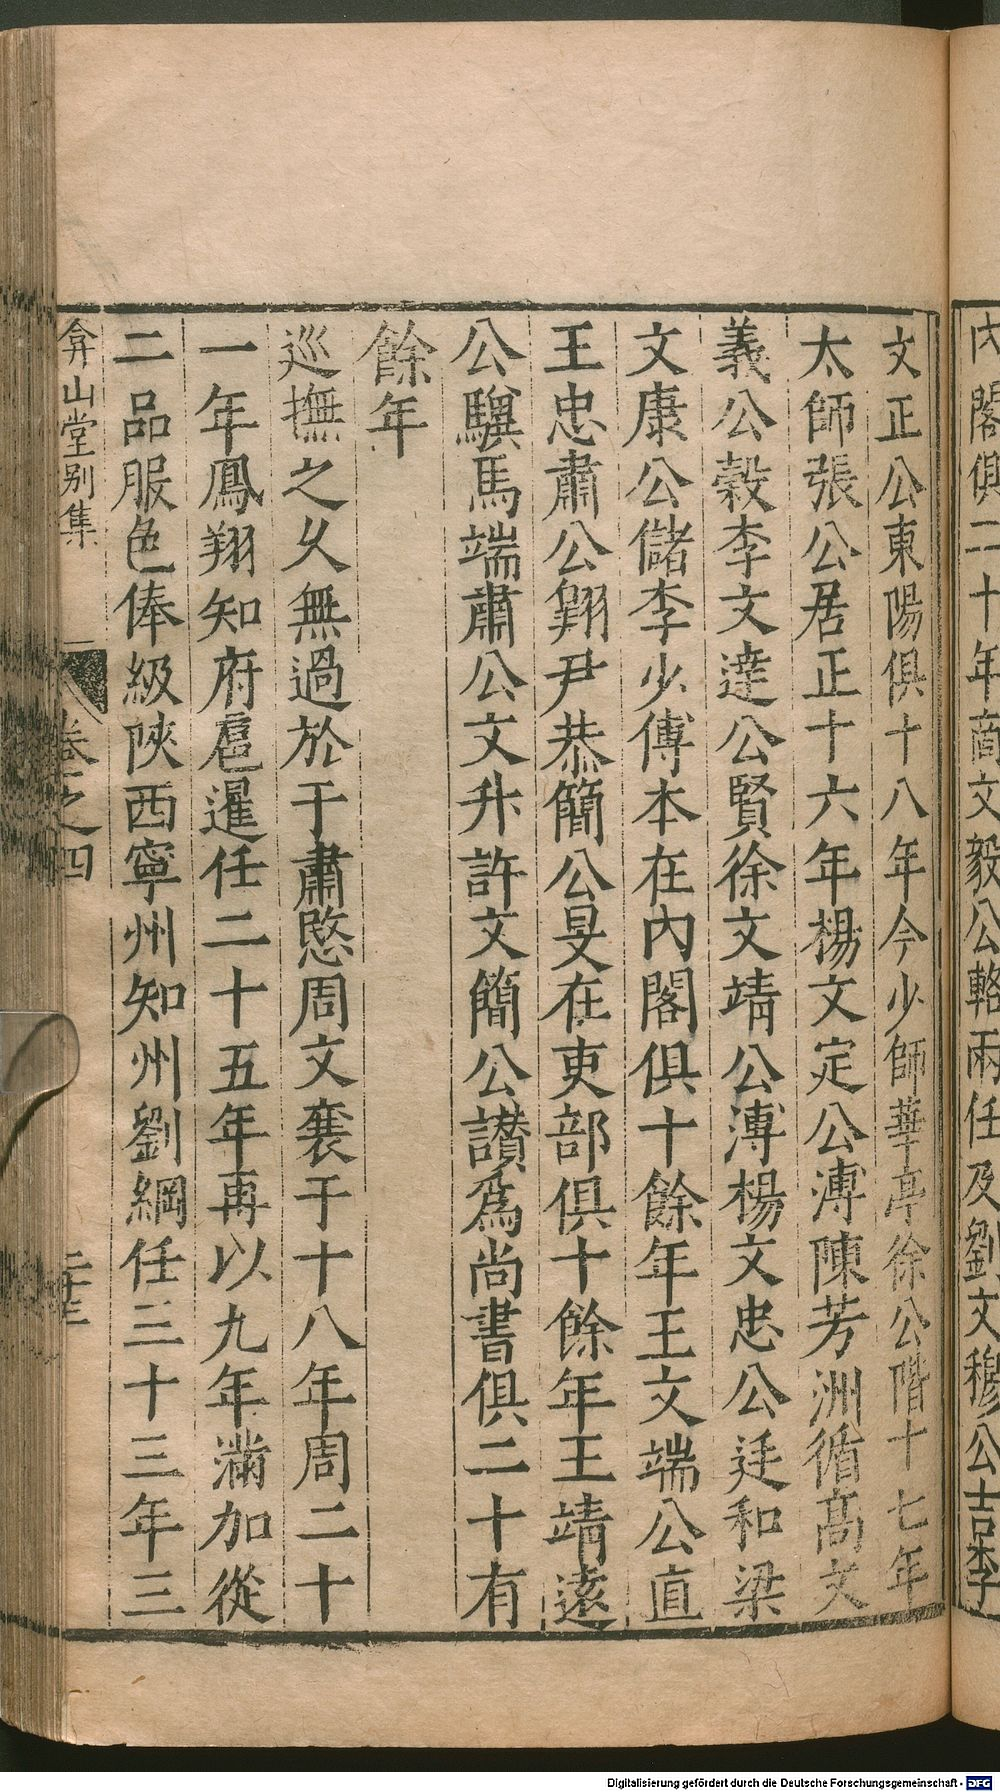 內閣俱二十年商文毅公輅兩任及劉文穆公吉李
文正公東陽俱十八年今少師華亭徐公階十七年
太師張公居正十六年楊文定公溥陳芳洲循高文
義公穀李文達公賢徐文靖公溥楊文忠公廷和梁
文康公儲李少傅本在內閣俱十餘年王文端公直
王忠肅公翺尹恭簡公旻在吏部俱十餘年王靖遠
公驥馬端肅公文升許文簡公讚爲尚書俱二十有
餘年
巡撫之久無過於于肅愍周文襄于十八年周二十
一年鳳翔知府扈暹任二十五年再以九年滿加從
二品服色俸級陝西寧州知州劉綱任三十三年三
弇山堂別集
卷之四
二十三
Digitalisierung gefördert durch die Deutsche Forschungsgemeinschaft - DFG